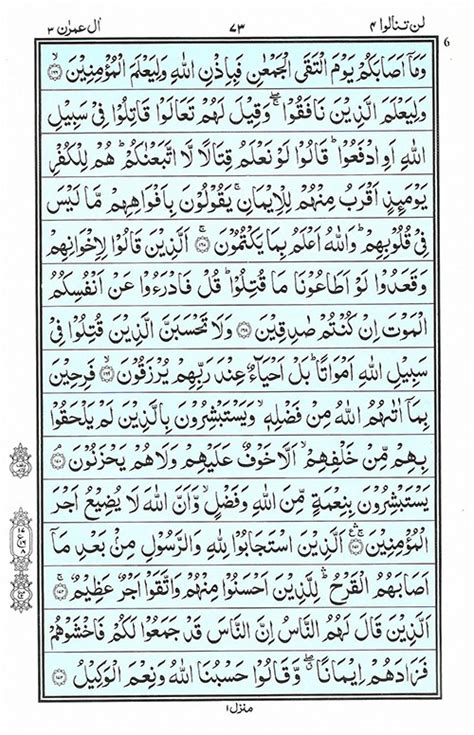 لن تنالوا ٤ ٧٣ اٰل عمرٰن ٣
6
وَمَاۤ اَصَابَكُمْ يَوْمَ الْتَقَى الْجَمْعٰنِ فَبِاِذْنِ اللّٰهِ وَلِيَعْلَمَ الْمُؤْمِنِيْنَ ۙ﴿۱۶۶﴾
وَلِيَعْلَمَ الَّذِيْنَ نَافَقُوْا ۖۚ وَقِيْلَ لَهُمْ تَعَالَوْا قَاتِلُوْا فِيْ سَبِيْلِ
اللّٰهِ اَوِ ادْفَعُوْا ؕ قَالُوْا لَوْ نَعْلَمُ قِتَالًا لَّا اتَّبَعْنٰكُمْ ؕ هُمْ لِلْكُفْرِ
يَوْمَىِٕذٍ اَقْرَبُ مِنْهُمْ لِلْاِيْمَانِ ۚ يَقُوْلُوْنَ بِاَفْوَاهِهِمْ مَّا لَيْسَ
فِيْ قُلُوْبِهِمْ ؕ وَاللّٰهُ اَعْلَمُ بِمَا يَكْتُمُوْنَ ۚ﴿۱۶۷﴾ اَلَّذِيْنَ قَالُوْا لِاِخْوَانِهِمْ
وَقَعَدُوْا لَوْ اَطَاعُوْنَا مَا قُتِلُوْا ؕ قُلْ فَادْرَءُوْا عَنْ اَنْفُسِكُمُ
الْمَوْتَ اِنْ كُنْتُمْ صٰدِقِيْنَ ﴿۱۶۸﴾ وَلَا تَحْسَبَنَّ الَّذِيْنَ قُتِلُوْا فِيْ
سَبِيْلِ اللّٰهِ اَمْوَاتًا ؕ بَلْ اَحْيَآءٌ عِنْدَ رَبِّهِمْ يُرْزَقُوْنَ ۙ﴿۱۶۹﴾ فَرِحِيْنَ
بِمَاۤ اٰتٰىهُمُ اللّٰهُ مِنْ فَضْلِهٖ ۙ وَيَسْتَبْشِرُوْنَ بِالَّذِيْنَ لَمْ يَلْحَقُوْا
بِهِمْ مِّنْ خَلْفِهِمْ ۙ اَلَّا خَوْفٌ عَلَيْهِمْ وَلَا هُمْ يَحْزَنُوْنَ ۘ﴿۱۷۰﴾
يَسْتَبْشِرُوْنَ بِنِعْمَةٍ مِّنَ اللّٰهِ وَفَضْلٍ ۙ وَّاَنَّ اللّٰهَ لَا يُضِيْعُ اَجْرَ
الْمُؤْمِنِيْنَ ۚ﴿۱۷۱﴾ اَلَّذِيْنَ اسْتَجَابُوْا لِلّٰهِ وَالرَّسُوْلِ مِنْۢ بَعْدِ مَاۤ
اَصَابَهُمُ الْقَرْحُ ؕ لِلَّذِيْنَ اَحْسَنُوْا مِنْهُمْ وَاتَّقَوْا اَجْرٌ عَظِيْمٌ ۚ﴿۱۷۲﴾
اَلَّذِيْنَ قَالَ لَهُمُ النَّاسُ اِنَّ النَّاسَ قَدْ جَمَعُوْا لَكُمْ فَاخْشَوْهُمْ
فَزَادَهُمْ اِيْمَانًا ۖۗ وَّقَالُوْا حَسْبُنَا اللّٰهُ وَنِعْمَ الْوَكِيْلُ ﴿۱۷۳﴾
منزل ۱